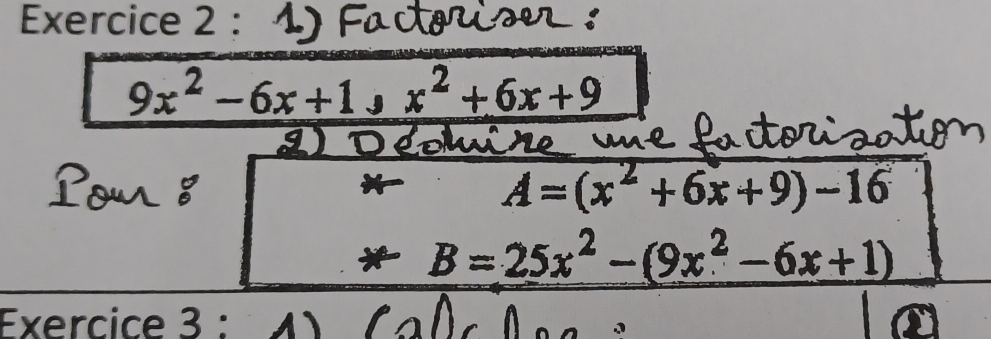 Exercice 2 : 1) Factoriser :
9x² - 6x + 1 , x² + 6x + 9
2) Déduire une factorisation
Pour :
* A = (x² + 6x + 9) - 16
* B = 25x² - (9x² - 6x + 1)
Exercice 3 : 1)